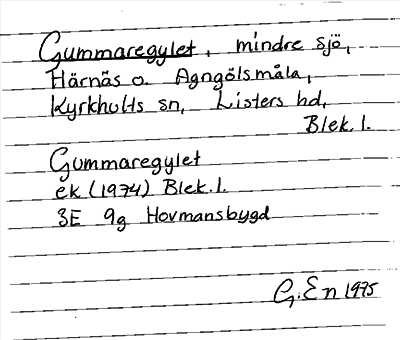 Gummaregylet, mindre sjö,
Härnäs o. Agngölsmåla,
Kyrkhults sn, Listers hd,
Blek. l.
Gummaregylet
ek (1974) Blek. l.
3E 9g Hovmansbygd
G. En 1975